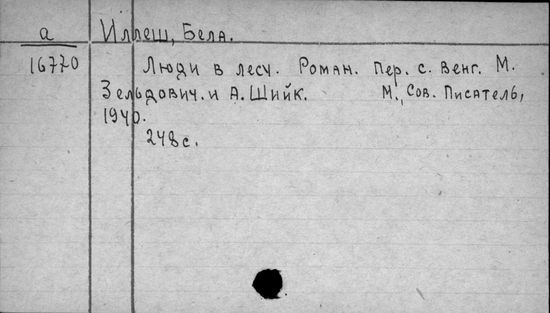 а
16770
Иллеш, Бела.
Люди в лесу. Роман. Пер. с. венг. М.
Зельдович. и А. Шийк. М., Сов. Писатель,
1940.
248с.